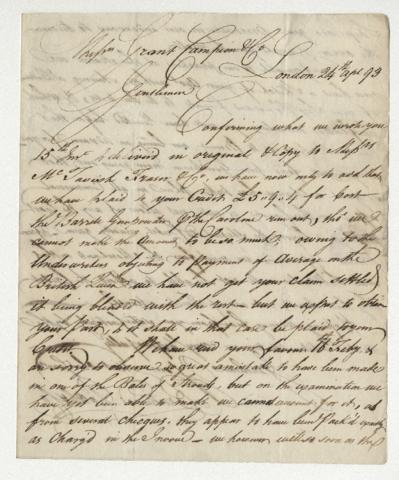 Messrs Grant Campion & Co
London 24th Apl 93
Gentlemen
Confirming what we wrote you
15th Inst delivered in original & Copy to Messrs
McTavish Fraser & Co, we have now only to add that
we have plac'd to your Credit £5..9..4 for Cost
the Barrel p the Caroline run out, tho' we
cannot make the Amount to be so much; owing to the
Underwriters objecting to payment of Average on the
British Queen we have not got your claim settled
it being blended with the rest — but we expect to obtain
your part, & it shall in that case be placed to your
Credit. We have recd your favour 18th Feby &
are sorry to observe so great a mistake to have been made
in one of the Bales of Strouds, but on the examination we
have not been able to make we cannot account for it, as
from several checques, they appear to have been Pack'd exactly
as Charg'd in the Invoice — we however will so soon as the